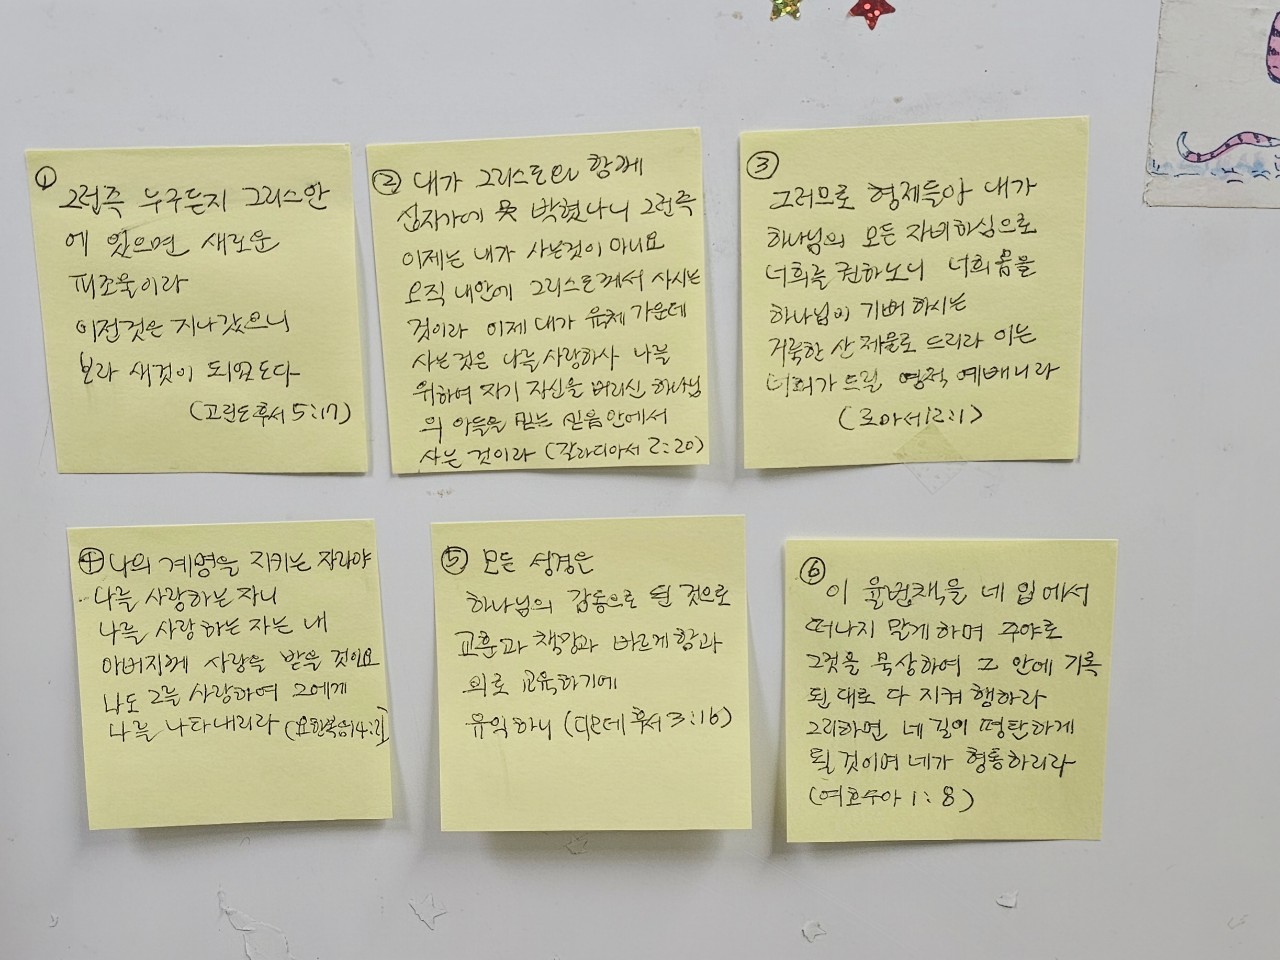 ①
그런즉 누구든지 그리스안
에 있으면 새로운
피조물이라
이전것은 지나갔으니
보라 새것이 되었도다
(고린도후서 5:17)
② 내가 그리스도와 함께
십자가에 못 박혔나니 그런즉
이제는 내가 사는것이 아니요
오직 내안에 그리스도께서 사시는
것이라 이제 내가 육체 가운데
사는것은 나를 사랑하사 나를
위하여 자기 자신을 버리신 하나님
의 아들을 믿는 믿음안에서
사는 것이라 (갈라디아서 2:20)
③
그러므로 형제들아 내가
하나님의 모든 자비하심으로
너희를 권하노니 너희 몸을
하나님이 기뻐하시는
거룩한 산 제물로 드리라 이는
너희가 드릴 영적 예배니라
(로마서12:1)
④ 나의 계명을 지키는 자라야
나를 사랑하는 자니
나를 사랑하는 자는 내
아버지께 사랑을 받을 것이요
나도 그를 사랑하여 그에게
나를 나타내리라 (요한복음14:21)
⑤ 모든 성경은
하나님의 감동으로 된 것으로
교훈과 책망과 바르게함과
의로 교육하기에
유익하니 (디모데후서 3:16)
⑥
이 율법책을 네 입에서
떠나지 말게하며 주야로
그것을 묵상하여 그 안에 기록
된 대로 다 지켜 행하라
그리하면 네 길이 평탄하게
될 것이며 네가 형통하리라
(여호수아 1:8)